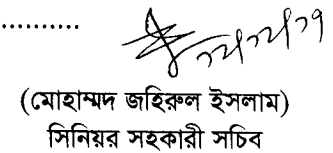 ...........
(মোহাম্মদ জহিরুল ইসলাম)
সিনিয়র সহকারী সচিব